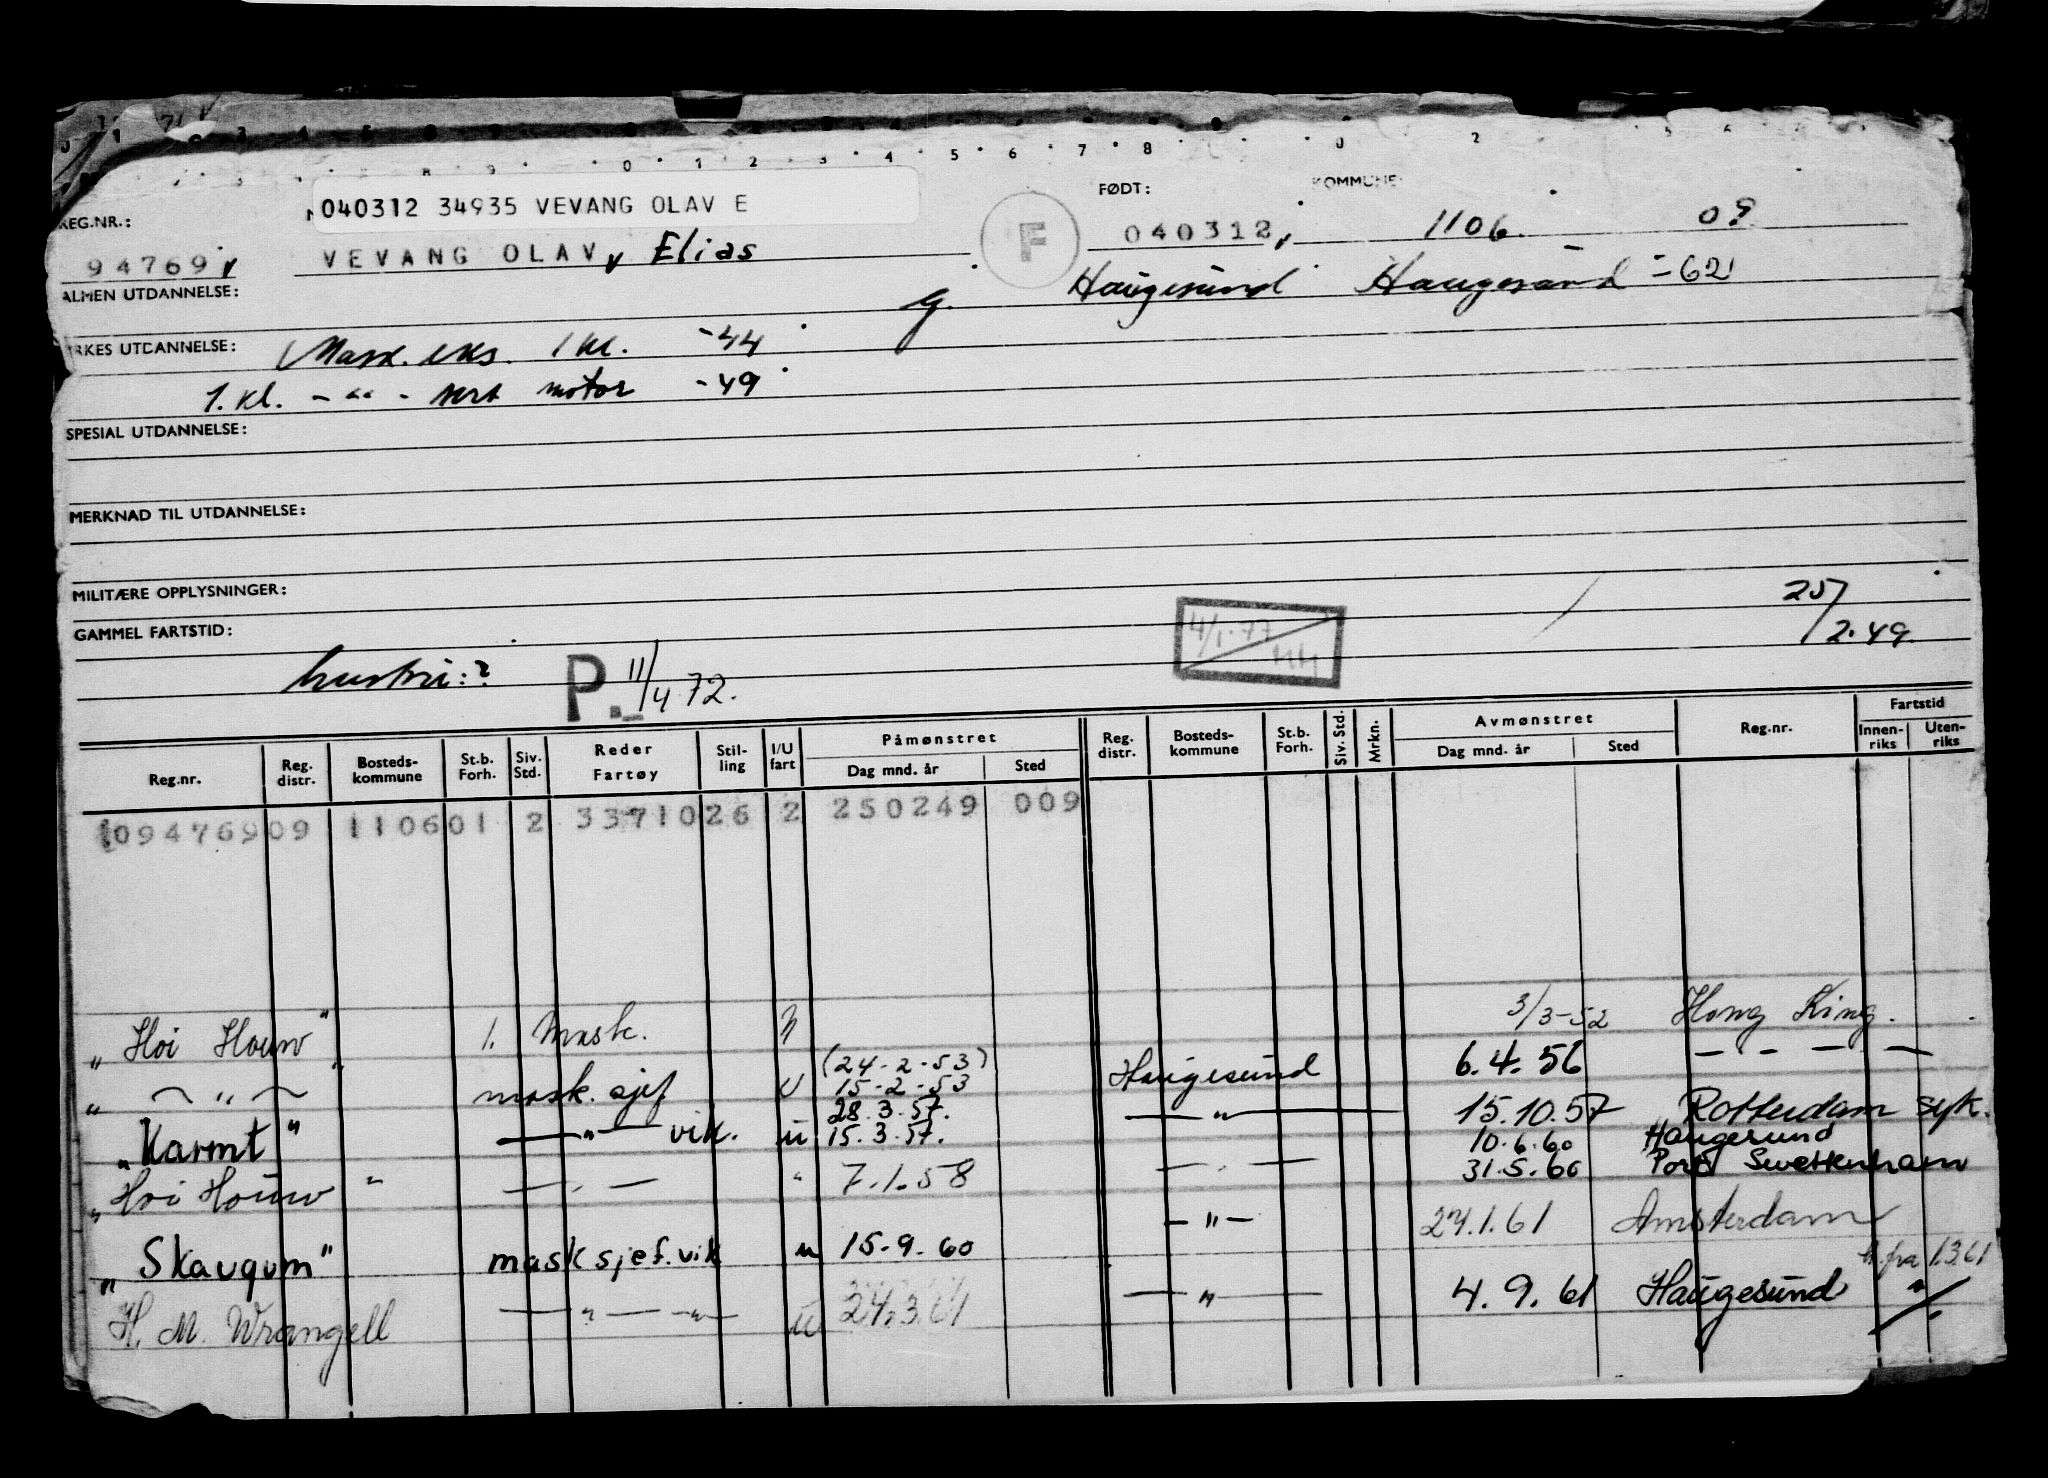 040312 34935 VEVANG OLAV E
FØDT:
KOMMUNE:
REG.NR.:
94769
VEVANG OLAV Elias
F
040312
1106.
09
ALMEN UTDANNELSE:
G.
Haugesund
Haugesund -62
YRKES UTDANNELSE: Mask. eks. 1 kl. -44
1. kl. - " - mot -49
SPESIAL UTDANNELSE:
MERKNAD TIL UTDANNELSE:
MILITÆRE OPPLYSNINGER:
GAMMEL FARTSTID:
25/2.49
4/1-77
hustru:?
P. 11/4 72.
Reg.nr.
Reg. distr.
Bosteds-kommune
St.b. Forh.
Siv. Std.
Reder Fartøy
Stil-ling
I/U fart
Påmønstret
Dag mnd. år
Sted
Reg. distr.
Bosteds-kommune
St.b. Forh.
Siv. Std.
Mrkn.
Avmønstret
Dag mnd. år
Sted
Reg.nr.
Fartstid
Innen-riks
Uten-riks
09476909 110601 2 3371026 2 250249 009
"Hoi Houw" 1. mask. 3/3-52 Hong King.
" - " - mask. sjef U (24-2-53) 15-2-53 Haugesund 6.4.56 - - - -
"Karmt" - " - vik. u 28.3.57. 15.3.57. - " - 15.10.57 Rotterdam syk.
"Hoi Houw" - " - " 7.1.58 - " - 10.6.60 Haugesund 31.5.60 Port Swettenham
"Skaugum" mask sjef. vik u 15.9.60 - " - 27.1.61 Amsterdam
H. M. Wrangell - " - " - u 24.3.61 - " - 4.9.61 Haugesund fra 1.3.61